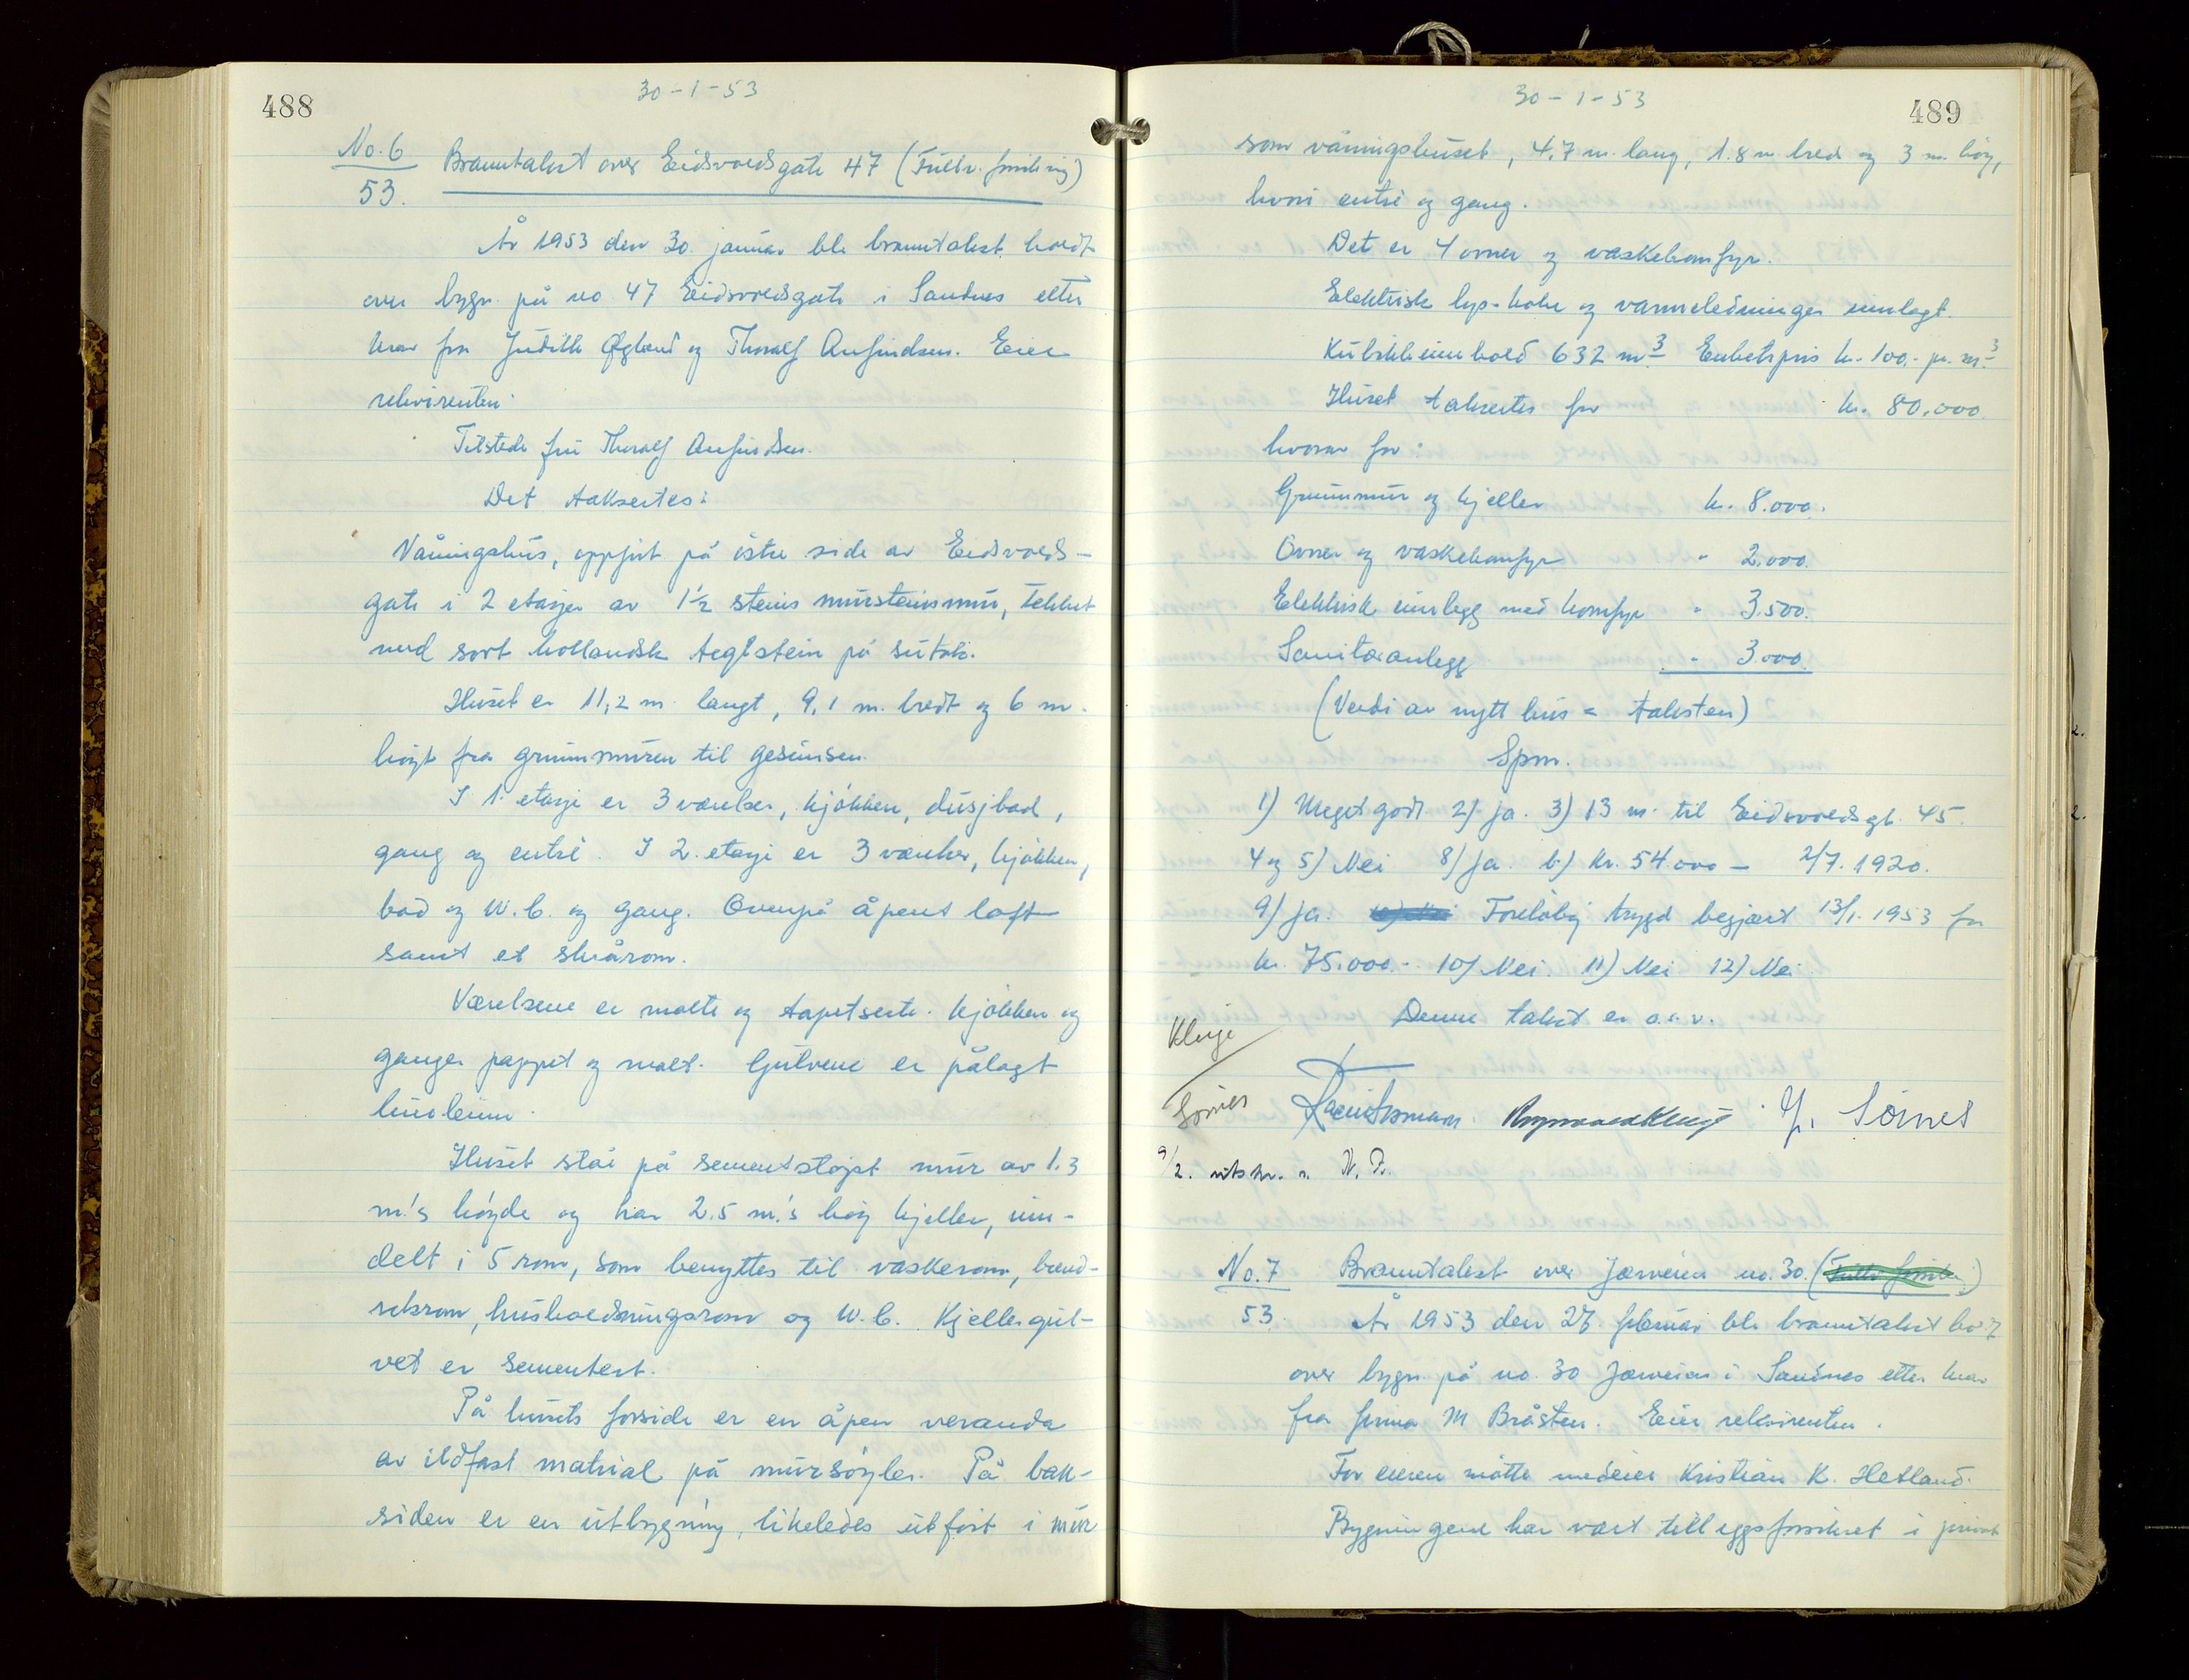 488
30-1-53
No. 6
53.
Branntakst over Eidsvoldsgate 47 (Fullv. forsikring)
År 1953 den 30. januar ble branntakst holdt
over bygn. på no 47 Eidsvoldsgate i Sandnes etter
krav fra Judith Øgland og Thoralf Anfindsen. Eier
rekvirenten.
Tilstede fru Thoralf Anfindsen.
Det taksertes:
Våningshus, oppført på östre side av Eidsvolds-
gate i 2 etasjer av 1½ steins mursteinsmur, tekket
med sort hollandsk teglstein på sutak.
Huset er 11,2 m. langt, 9,1 m. bredt og 6 m.
höyt fra grunnmuren til gesimsen.
I 1. etasje er 3 værelser, kjökken, dusjbad,
gang og entré. I 2. etasje er 3 værelser, kjökken,
bad og W.C. og gang. Ovenpå åpent loft
samt et skrårom.
Værelsene er malte og tapetserte. Kjökken og
ganger pappet og malt. Gulvene er pålagt
linoleum.
Huset står på sementstöpt mur av 1.3
m.'s höyde og har 2.5 m.'s höy kjeller, inn-
delt i 5 rom, som benyttes til vaskerom, brend-
selsrom, husholdningsrom og W.C. Kjellergul-
vet er sementert.
På husets forside er en åpen veranda
av ildfast matrial på mursöyler. På bak-
siden er en utbygning, likeledes utfört i mur
30-1-53
489
som våningshuset, 4,7 m. lang, 1.8 m. bred og 3 m. höy,
hvori entré og gang.
Det er 4 ovner og vaskekomfyr.
Elektrisk lys- koke og varmeledninger innlagt.
Kubikkinnhold 632 m³. Enhetspris kr. 100.- pr. m³
Huset takseres for kr. 80.000.
hvorav for:
Grunnmur og kjeller kr. 8.000.
Ovner og vaskekomfyr " 2.000.
Elektrisk innlegg med komfyr " 3.500.
Sanitæranlegg " 3.000.
(Verdi av nytt hus = taksten)
Spm.
1) Meget godt 2) Ja. 3) 13 m. til Eidsvoldsgt. 45.
4 og 5) Nei 8) Ja. b) Kr. 54.000 - 2/7. 1920.
9) Ja. Forelöbig trygd begjært 13/1. 1953 for
kr. 75.000.- 10) Nei. 11) Nei 12) Nei
Denne takst er o.s.v.
Kluge
Sörnes
Y. Sörnes
9/2. utskr. s. N. B.
No. 7
53.
Branntakst over Jærveien no. 30. (Fullv. forsikr.)
År 1953 den 27. februar ble branntakst holdt
over bygn. på no. 30 Jærveien i Sandnes etter krav
fra firma M Bråsten. Eier rekvirenten.
For eieren mötte medeier Kristian K. Hetland.
Bygningene har vært tilleggsforsikret i privat